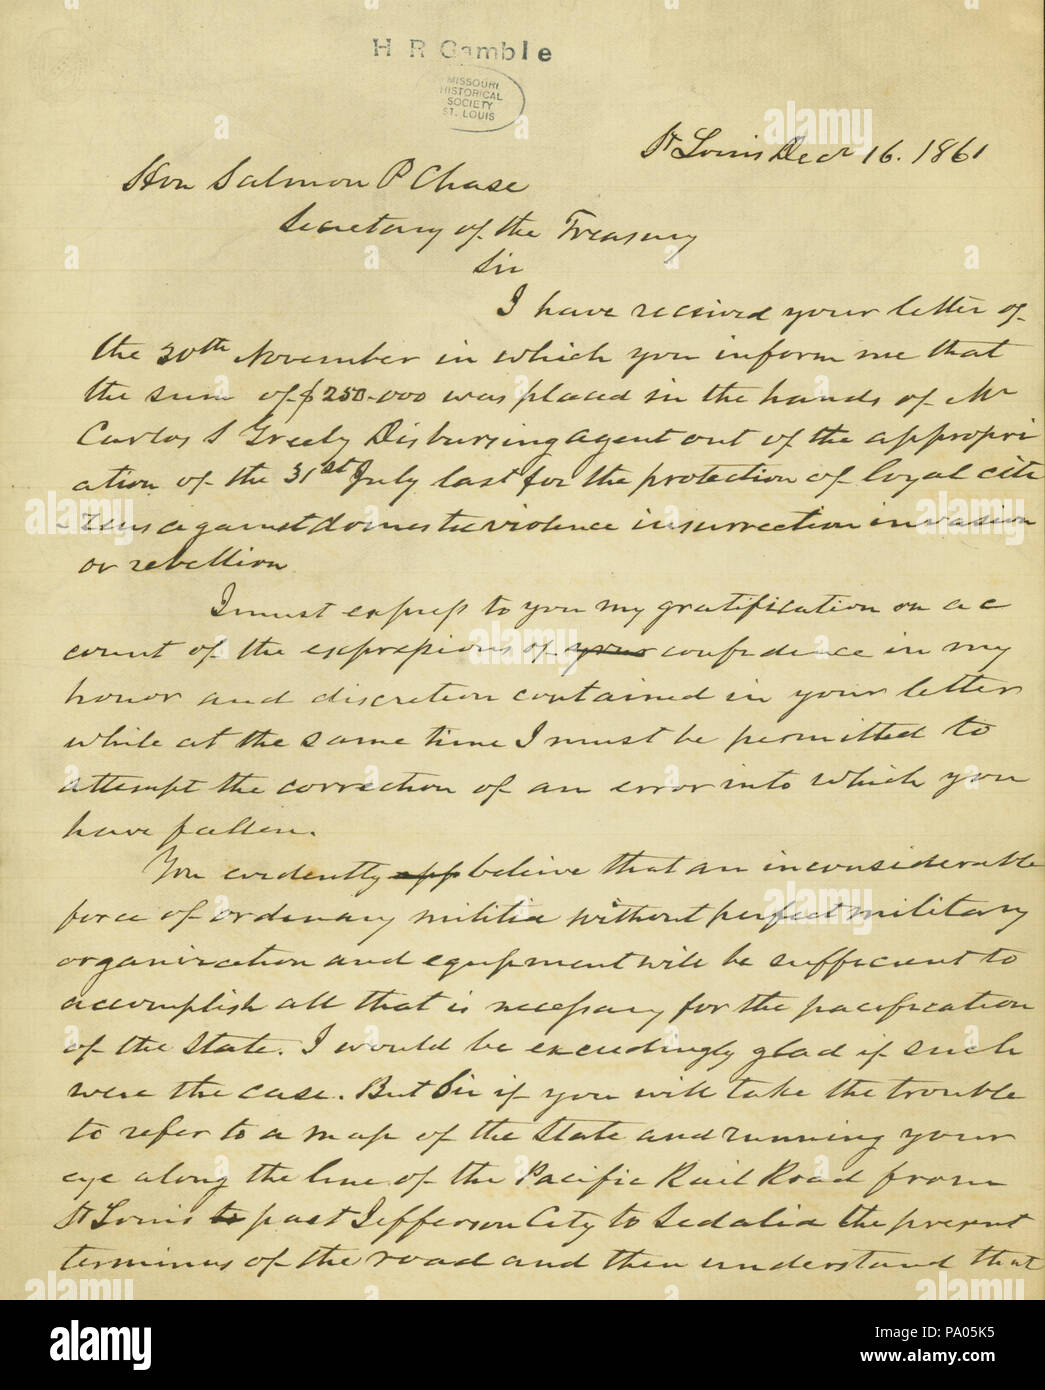 H R Gamble
MISSOURI
HISTORICAL
SOCIETY
ST. LOUIS
St Louis Decr 16. 1861
Hon Salmon P Chase
Secretary of the Treasury
Sir
I have received your letter of
the 30th November in which you inform me that
the sum of $250.000 was placed in the hands of Mr
Carlos S Greely Disbursing agent out of the appropri
ation of the 31st July last for the protection of loyal citi
-zens against domestic violence insurrection invasion
or rebellion
I must express to you my gratification on ac
count of the expressions of your confidence in my
honor and discretion contained in your letter
while at the same time I must be permitted to
attempt the correction of an error into which you
have fallen.
You evidently app believe that an inconsiderable
force of ordinary militia without perfect military
organization and equipment will be sufficient to
accomplish all that is necessary for the pacification
of the State. I would be exceedingly glad if such
were the case. But Sir if you will take the trouble
to refer to a map of the State and running your
eye along the line of the Pacific Rail Road from
St Louis to past Jefferson City to Sedalia the present
terminus of the road and then understand that
alamy
Image ID: PA05K5
www.alamy.com